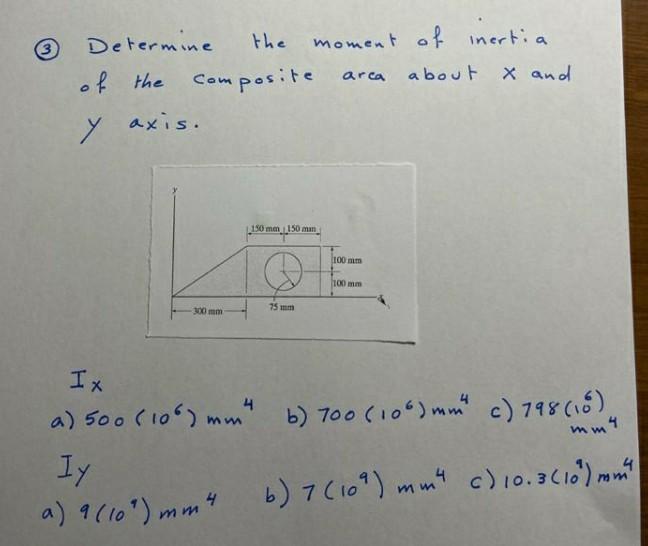 ③ Determine the moment of inertia
of the composite area about x and
y axis.
y
150 mm 150 mm
100 mm
100 mm
300 mm
75 mm
Ix
a) 500 (10⁶) mm⁴ b) 700 (10⁶) mm⁴ c) 798 (10⁶) mm⁴
Iy
a) 9 (10⁹) mm⁴ b) 7 (10⁹) mm⁴ c) 10.3 (10⁹) mm⁴